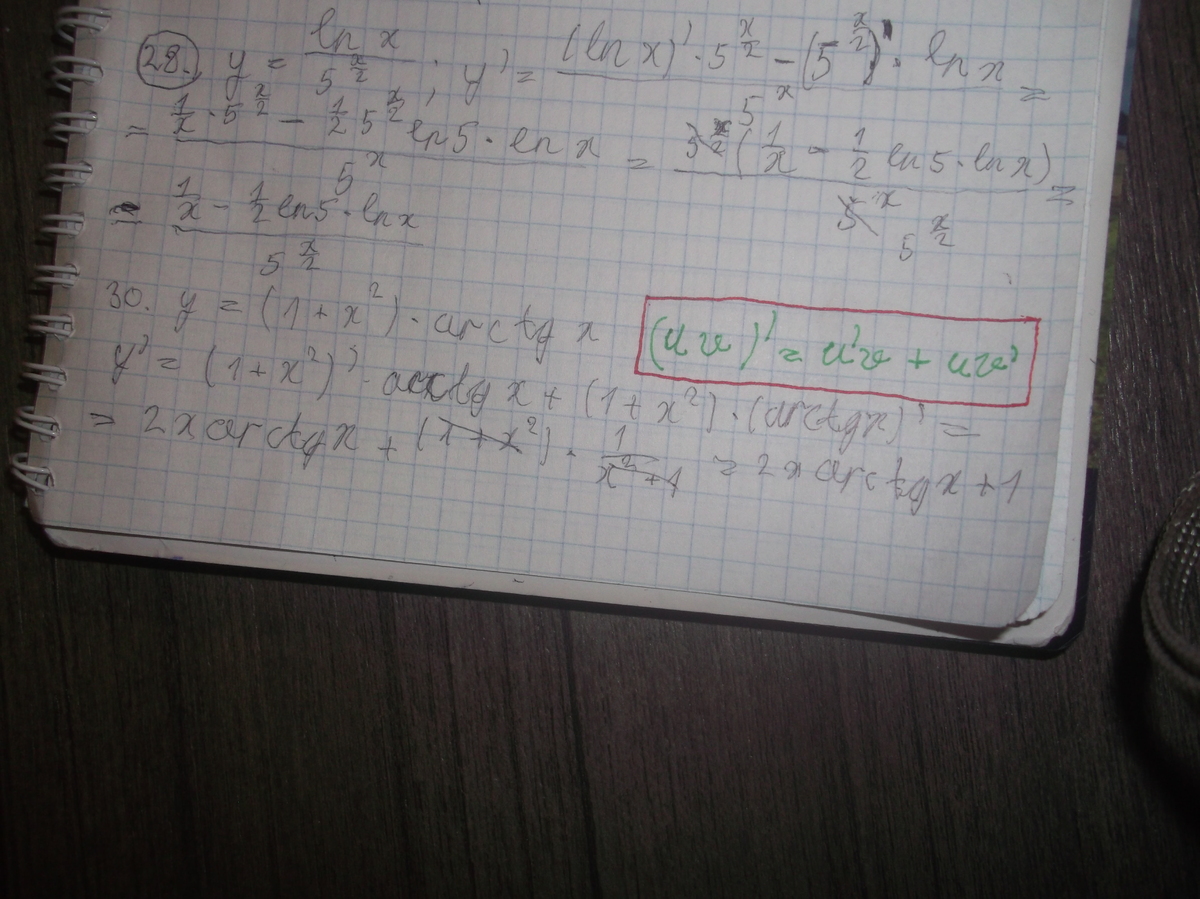 28. y = ln x / 5^(x/2) ; y' = ((ln x)' · 5^(x/2) − (5^(x/2))' · ln x) / 5^x =
= (1/x · 5^(x/2) − 1/2 5^(x/2) ln5 · ln x) / 5^x = 5^(x/2) (1/x − 1/2 ln5 · ln x) / 5^x 5^(x/2) =
= (1/x − 1/2 ln5 · ln x) / 5^(x/2)
30. y = (1 + x²) · arctg x
(uv)' = u'v + uv'
y' = (1 + x²)' · arctg x + (1 + x²) · (arctg x)' =
= 2x arctg x + (1 + x²) · 1/(x² + 1) = 2x arctg x + 1